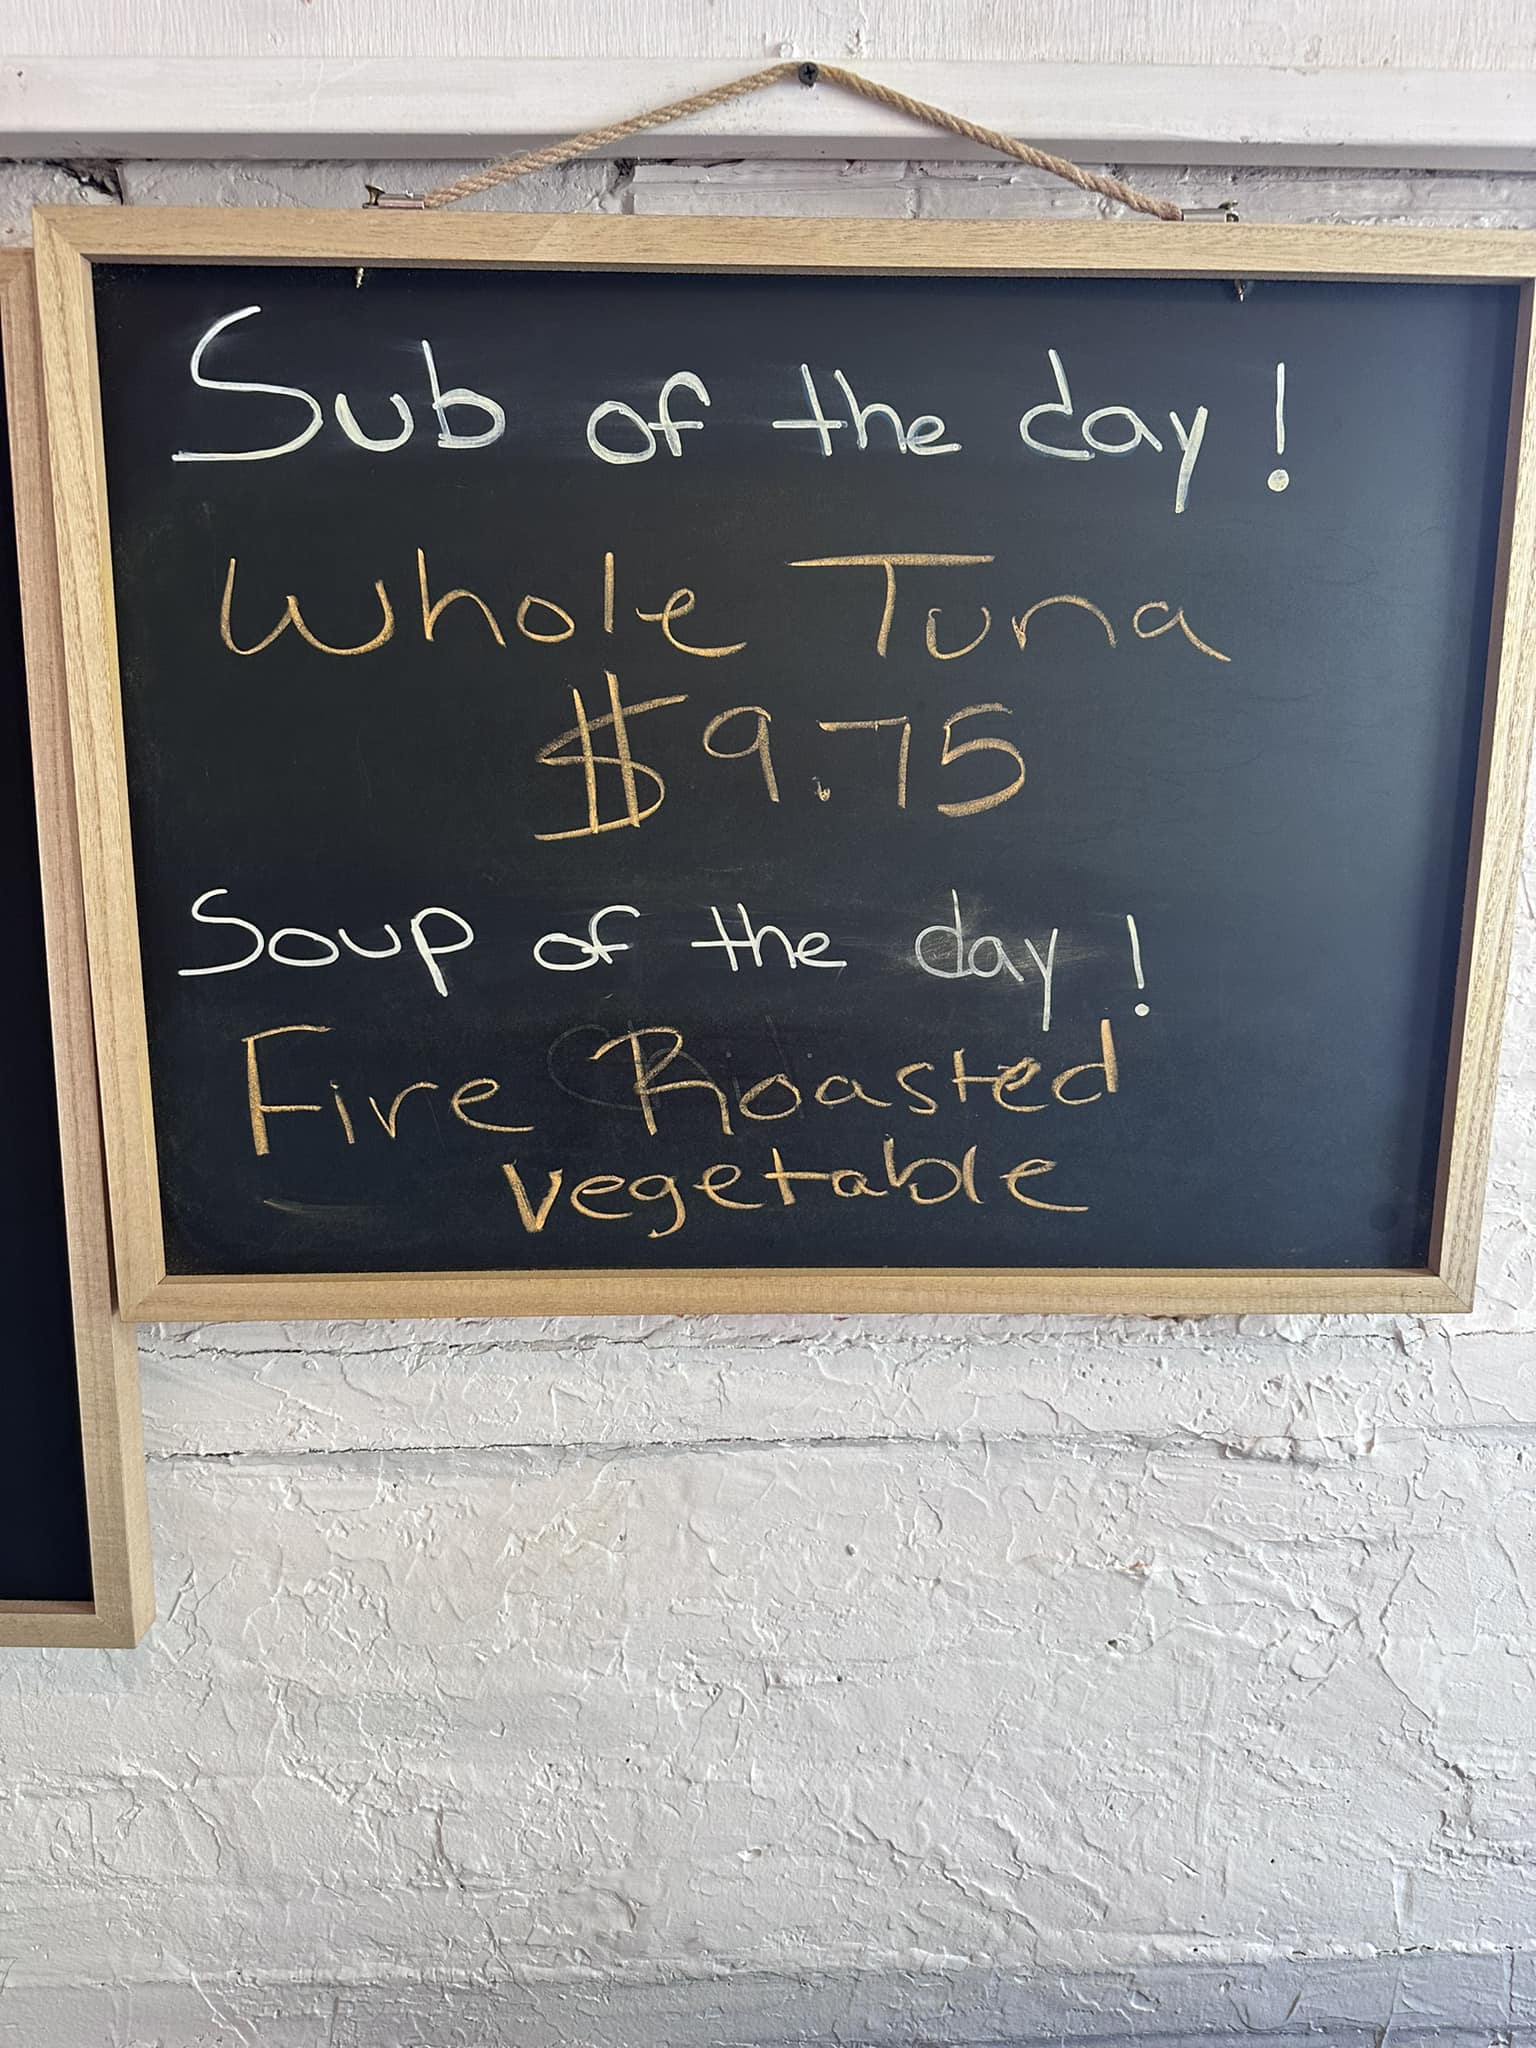 Sub of the day!
Whole Tuna
$9.75
Soup of the day!
Fire Roasted
vegetable